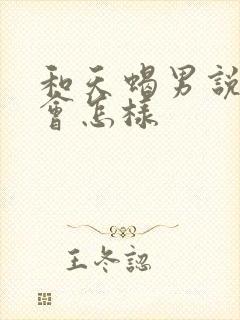 和天蝎男說
會怎樣
王冬認